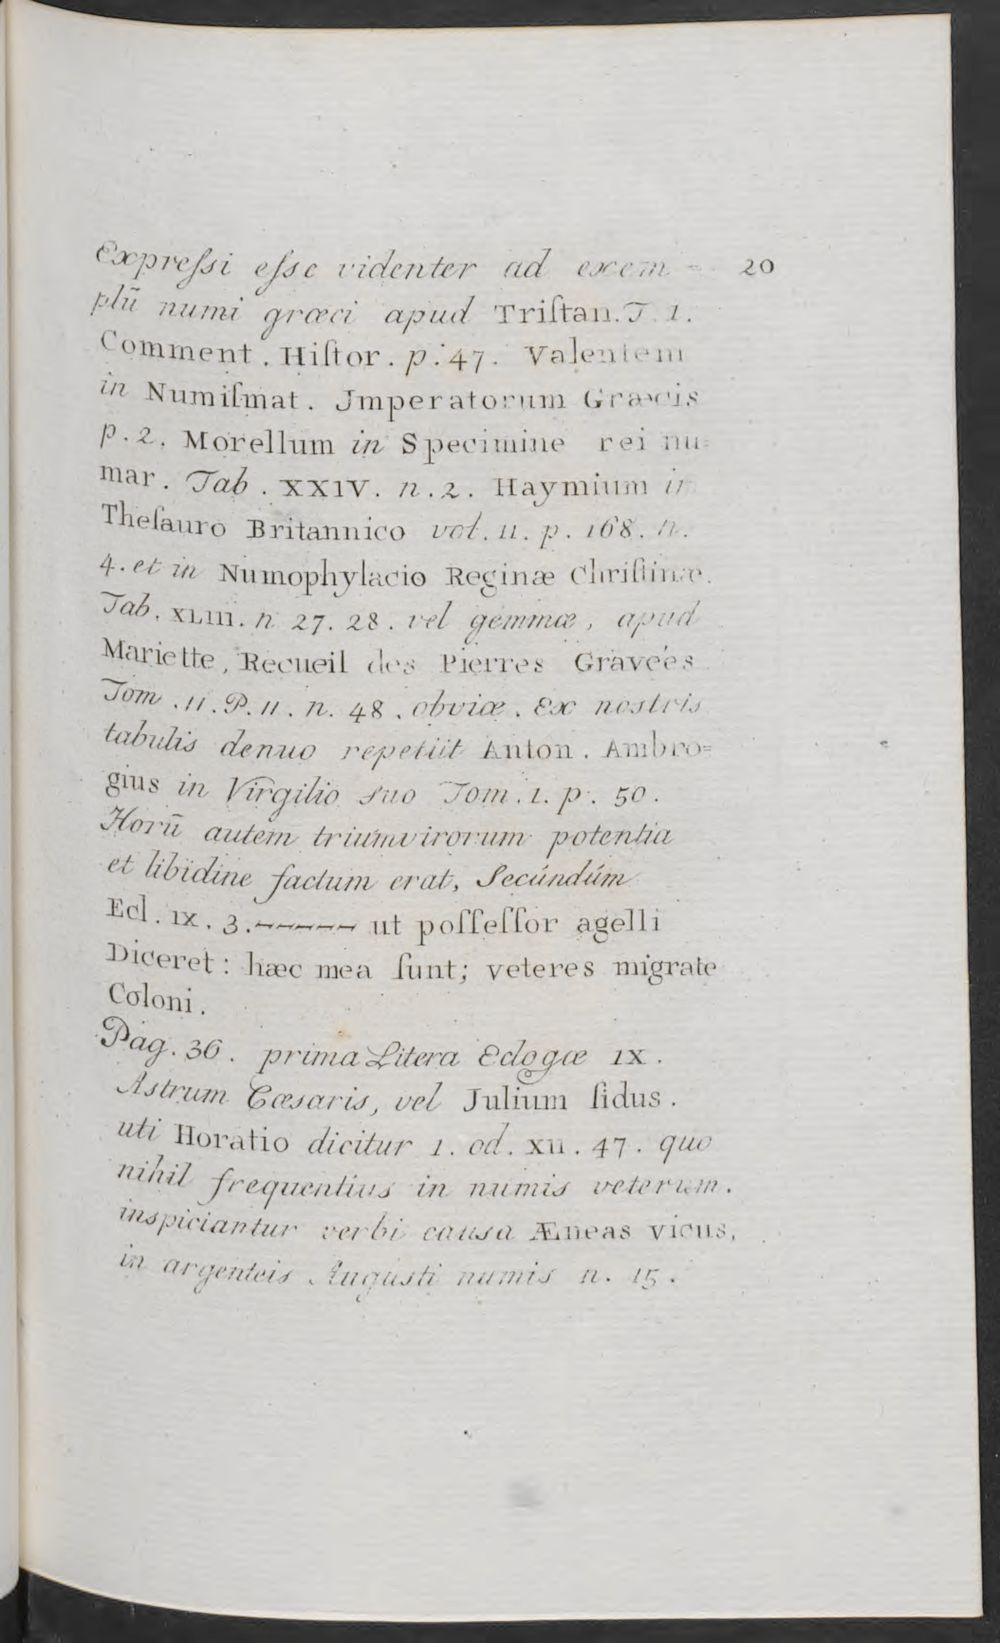 20
Expreſsi eſse videnter ad exem=
plū numi græci apud Triſtan. T. 1.
Comment. Hiſtor. p. 47. Valentem
in Numiſmat. Jmperatorum Græcis
p. 2. Morellum in Specimine rei nu=
mar. Tab. XXIV. n. 2. Haymium in
Theſauro Britannico vol. II. p. 168. n.
4. et in Numophylacio Reginæ Chriſtinæ.
Tab. XLIII. n 27. 28. vel gemmæ, apud
Mariette, Recueil des Pierres Gravées
Tom. II. P. II. n. 48. obviæ. Ex nostris
tabulis denuo repetiit Anton. Ambro=
gius in Virgilio suo Tom. 1. p. 50.
Horū autem triumvirorum potentia
et libidine factum erat, Secúndúm
Ecl. IX. 3. ----- ut poſſeſſor agelli
Diceret: hæc mea ſunt; veteres migrate
Coloni.
Pag. 36. prima Litera Eclogæ IX.
Astrum Cæsaris, vel Julium ſidus.
uti Horatio dicitur 1. od. XII. 47. quo
nihil frequentius in numis veterum.
inspiciantur verbi causa Æneas vicus,
in argenteis Augusti numis n. 15.